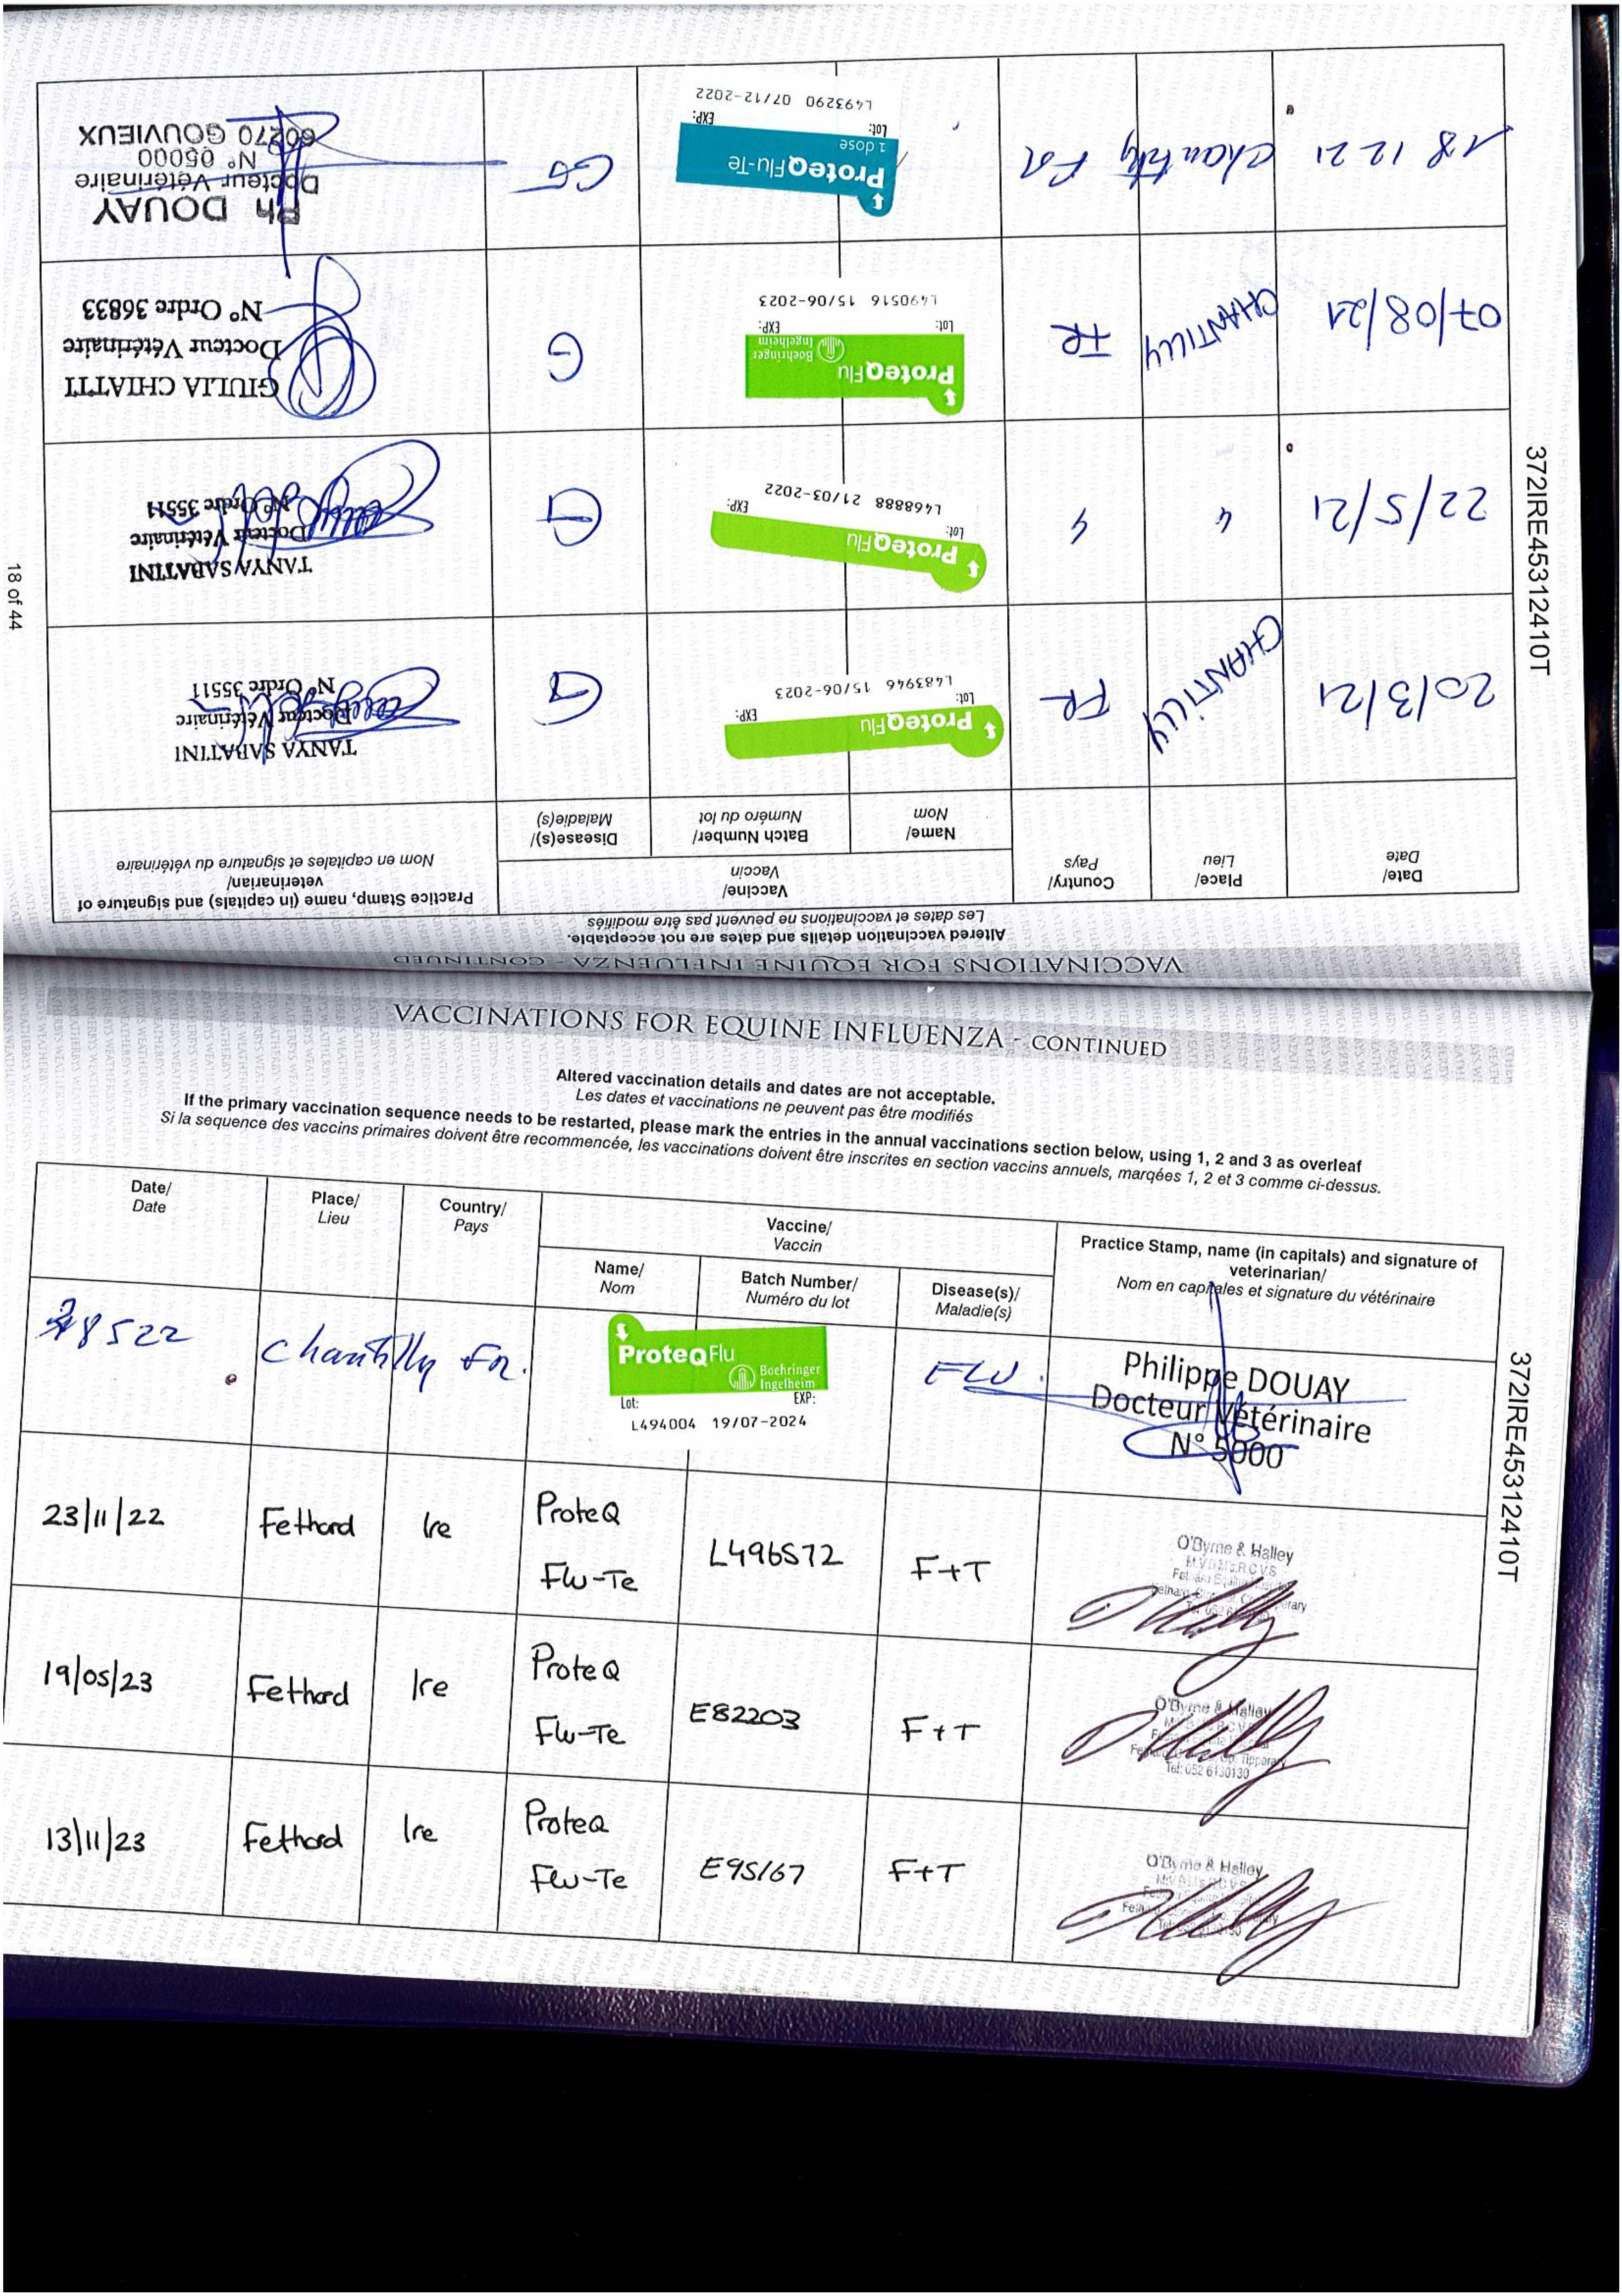 VACCINATIONS FOR EQUINE INFLUENZA - CONTINUED
Altered vaccination details and dates are not acceptable.
Les dates et vaccinations ne peuvent pas être modifiés
Date/
Date
Place/
Lieu
Country/
Pays
Vaccine/
Vaccin
Name/
Nom
Batch Number/
Numéro du lot
Disease(s)/
Maladie(s)
Practice Stamp, name (in capitals) and signature of
veterinarian/
Nom en capitales et signature du vétérinaire
20/3/21
CHANTILLY
FR
ProteqFlu
Lot: EXP:
L483946 15/06-2023
G
TANYA SABATINI
Docteur Vétérinaire
N° Ordre 35511
22/5/21
ProteqFlu
Lot: EXP:
L468888 21/03-2022
G
TANYA SABATINI
Docteur Vétérinaire
N° Ordre 35511
07/08/21
CHANTILLY
FR
ProteqFlu
Boehringer
Ingelheim
Lot: EXP:
L490516 15/06-2023
G
GIULIA CHIATTI
Docteur Vétérinaire
N° Ordre 36833
18 12 21
Chantilly
ProteqFlu-Te
1 dose
Lot: EXP:
L493290 07/12-2022
Ph DOUAY
Docteur Vétérinaire
N° 05000
60270 GOUVIEUX
372IRE45312410T
18 of 44
VACCINATIONS FOR EQUINE INFLUENZA - CONTINUED
Altered vaccination details and dates are not acceptable.
Les dates et vaccinations ne peuvent pas être modifiés
If the primary vaccination sequence needs to be restarted, please mark the entries in the annual vaccinations section below, using 1, 2 and 3 as overleaf
Si la sequence des vaccins primaires doivent être recommencée, les vaccinations doivent être inscrites en section vaccins annuels, marqées 1, 2 et 3 comme ci-dessus.
Date/
Date
Place/
Lieu
Country/
Pays
Vaccine/
Vaccin
Name/
Nom
Batch Number/
Numéro du lot
Disease(s)/
Maladie(s)
Practice Stamp, name (in capitals) and signature of
veterinarian/
Nom en capitales et signature du vétérinaire
Chantilly Fr.
ProteqFlu
Boehringer
Ingelheim
Lot: EXP:
L494004 19/07-2024
FLU.
Philippe DOUAY
Docteur Vétérinaire
N° 5000
23/11/22
Fethard
Ire
ProteQ
Flu-Te
L496572
F+T
O'Byrne & Halley
19/05/23
Fethard
Ire
ProteQ
Flu-Te
E82203
F+T
O'Byrne & Halley
Tel: 052 6130130
13/11/23
Fethard
Ire
ProteQ
Flu-Te
E95167
F+T
O'Byrne & Halley
372IRE45312410T